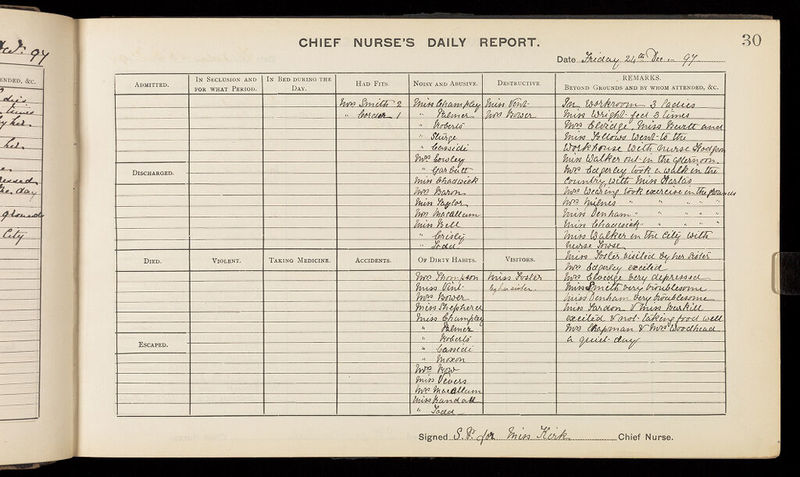 30
CHIEF NURSE'S DAILY REPORT.
Date Friday 24th Dec 97
ADMITTED.
IN SECLUSION AND FOR WHAT PERIOD.
IN BED DURING THE DAY.
HAD FITS.
Mrs Smith 2
" 1
NOISY AND ABUSIVE.
Miss Champley
" Palmer
" Roberts
" Sturge
" Cassidi
Mrs Cowley
" Garbutt
Miss Chadwick
Mrs Baron
Miss Taylor
Mrs Macallum
Miss Bell
" Grisley
" Todd
DESTRUCTIVE.
Miss Vint
Mrs Bower
REMARKS.
BEYOND GROUNDS AND BY WHOM ATTENDED, &C.
In workroom 3 ladies
Miss Wright feed 3 times
Mrs Elvidge, Miss Hewitt and
Miss Fellows went to the
Workhouse with Nurse Hodgson
Miss Walker out in the afternoon.
Mrs Edgerley took a walk in the
Country with Miss
Mrs Wearing took exercise in the grounds
Mrs Milnes " " " "
Miss Denham " " " "
Miss Chadwick " " "
Miss Walker in the City with
Nurse
Miss Foster visited by her sister
Mrs Edgerley excited
Mrs Elvidge very depressed
Miss Smith very troublesome
Miss Denham very troublesome
Miss Yardon & Miss
excited & not taking food well
Mrs Chapman & Mrs Woodhead
a quiet day
DISCHARGED.
DIED.
VIOLENT.
TAKING MEDICINE.
ACCIDENTS.
OF DIRTY HABITS.
Mrs Thompson
Miss Vint
Mrs Bower
Miss Shepherd
Miss Champley
" Palmer
" Roberts
" Cassidi
" Moxon
Mrs Row
Miss Vevers
Mrs Macallum
Miss Randall
" Todd
VISITORS.
Miss Foster
by her sister.
ESCAPED.
Signed for Miss Kirk Chief Nurse.